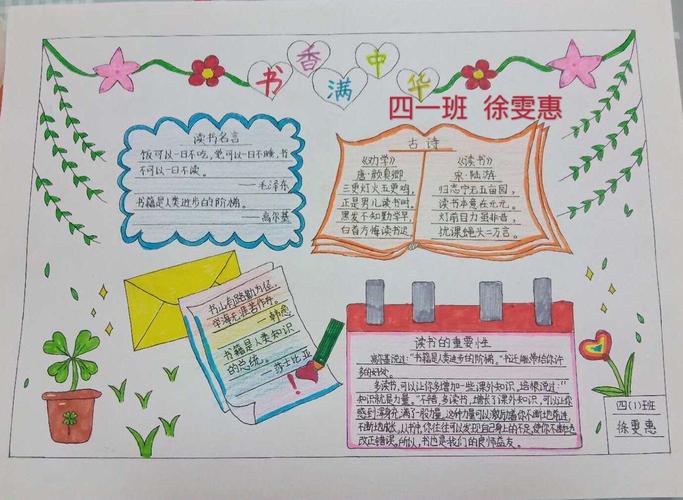 书香满中华
四一班 徐雯惠
读书名言
饭可以一日不吃，觉可以一日不睡，书
不可以一日不读。
——毛泽东
书籍是人类进步的阶梯。
——高尔基
古诗
《劝学》
唐·颜真卿
三更灯火五更鸡，
正是男儿读书时。
黑发不知勤学早，
白首方悔读书迟
《读书》
宋·陆游
归志宁无五亩园，
读书本意在元元。
灯前目力虽非昔，
犹课蝇头二万言。
书山有路勤为径，
学海无涯苦作舟。
——韩愈
书籍是人类知识
的总统。
——莎士比亚
读书的重要性
高尔基说过："书籍是人类进步的阶梯。"书还能带给你许
多的好处。
多读书，可以让你多增加一些课外知识。培根说过："
知识就是力量。"不错，多读书，增长了课外知识，可以让你
感到浑身充满了一股力量。这种力量可以激励着你不断地前进，
不断地成长。从书中，你往往可以发现自己身上的不足，使你不断地
改正错误。所以，书也是我们的良师益友。
四(1)班
徐雯惠